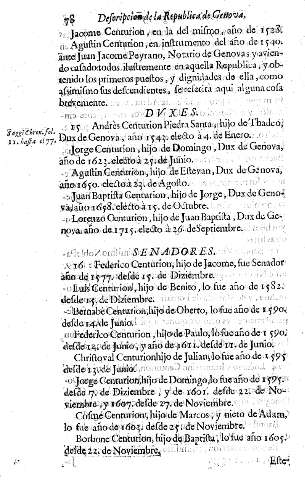 78 Descripcion de la Republica de Genova.
Jacome Centurion, en la del mismo, año de 1528.
Agustin Centurion, en instrumento del año de 1540.
ante Juan Jacome Peyrano, Notario de Genova; y avien-
do casado todos ilustremente en aquella Republica, y ob-
tenido los primeros puestos, y dignidades de ella, como
asimismo sus descendientes, se recitarà aqui alguna cosa
brevemente.
DVXES.
15 Andrès Centurion Piedra Santa, hijo de Thadeo,
Dux de Genova, año 1543. electo à 4. de Enero.
Foggi Chron. fol.
22. hasta 177.
Jorge Centurion, hijo de Domingo, Dux de Genova,
año de 1623. electo à 25. de Junio.
Agustin Centurion, hijo de Estevan, Dux de Genova,
año 1650. electo à 23. de Agosto.
Juan Baptista Centurion, hijo de Jorge, Dux de Geno-
va, año 1658. electo à 15. de Octubre.
Lorenzo Centurion, hijo de Juan Baptista, Dux de Ge-
nova, año de 1715. electo à 26. de Septiembre.
SENADORES.
16 Federico Centurion, hijo de Jacome, fue Senador
año de 1577. desde 15. de Diziembre.
Luis Centurion, hijo de Benito, lo fue año de 1582.
desde 15. de Diziembre.
Bernabè Centurion, hijo de Oberto, lo fue año de 1590.
desde 14. de Junio.
Federico Centurion, hijo de Paulo, lo fue año de 1590.
desde 14. de Junio, y año de 1611. desde 11. de Junio.
Christoval Centurion hijo de Julian, lo fue año de 1595
desde 13. de Junio.
Jorge Centurion, hijo de Domingo, lo fue año de 1595.
desde 7. de Diziembre, y de 1601. desde 22. de No-
viembre, y 1607. desde 27. de Noviembre.
Cosme Centurion, hijo de Marcos, y nieto de Adam,
lo fue año de 1603. desde 25. de Noviembre.
Borbone Centurion, hijo de Baptista, lo fue año 1605.
desde 22. de Noviembre.
Este